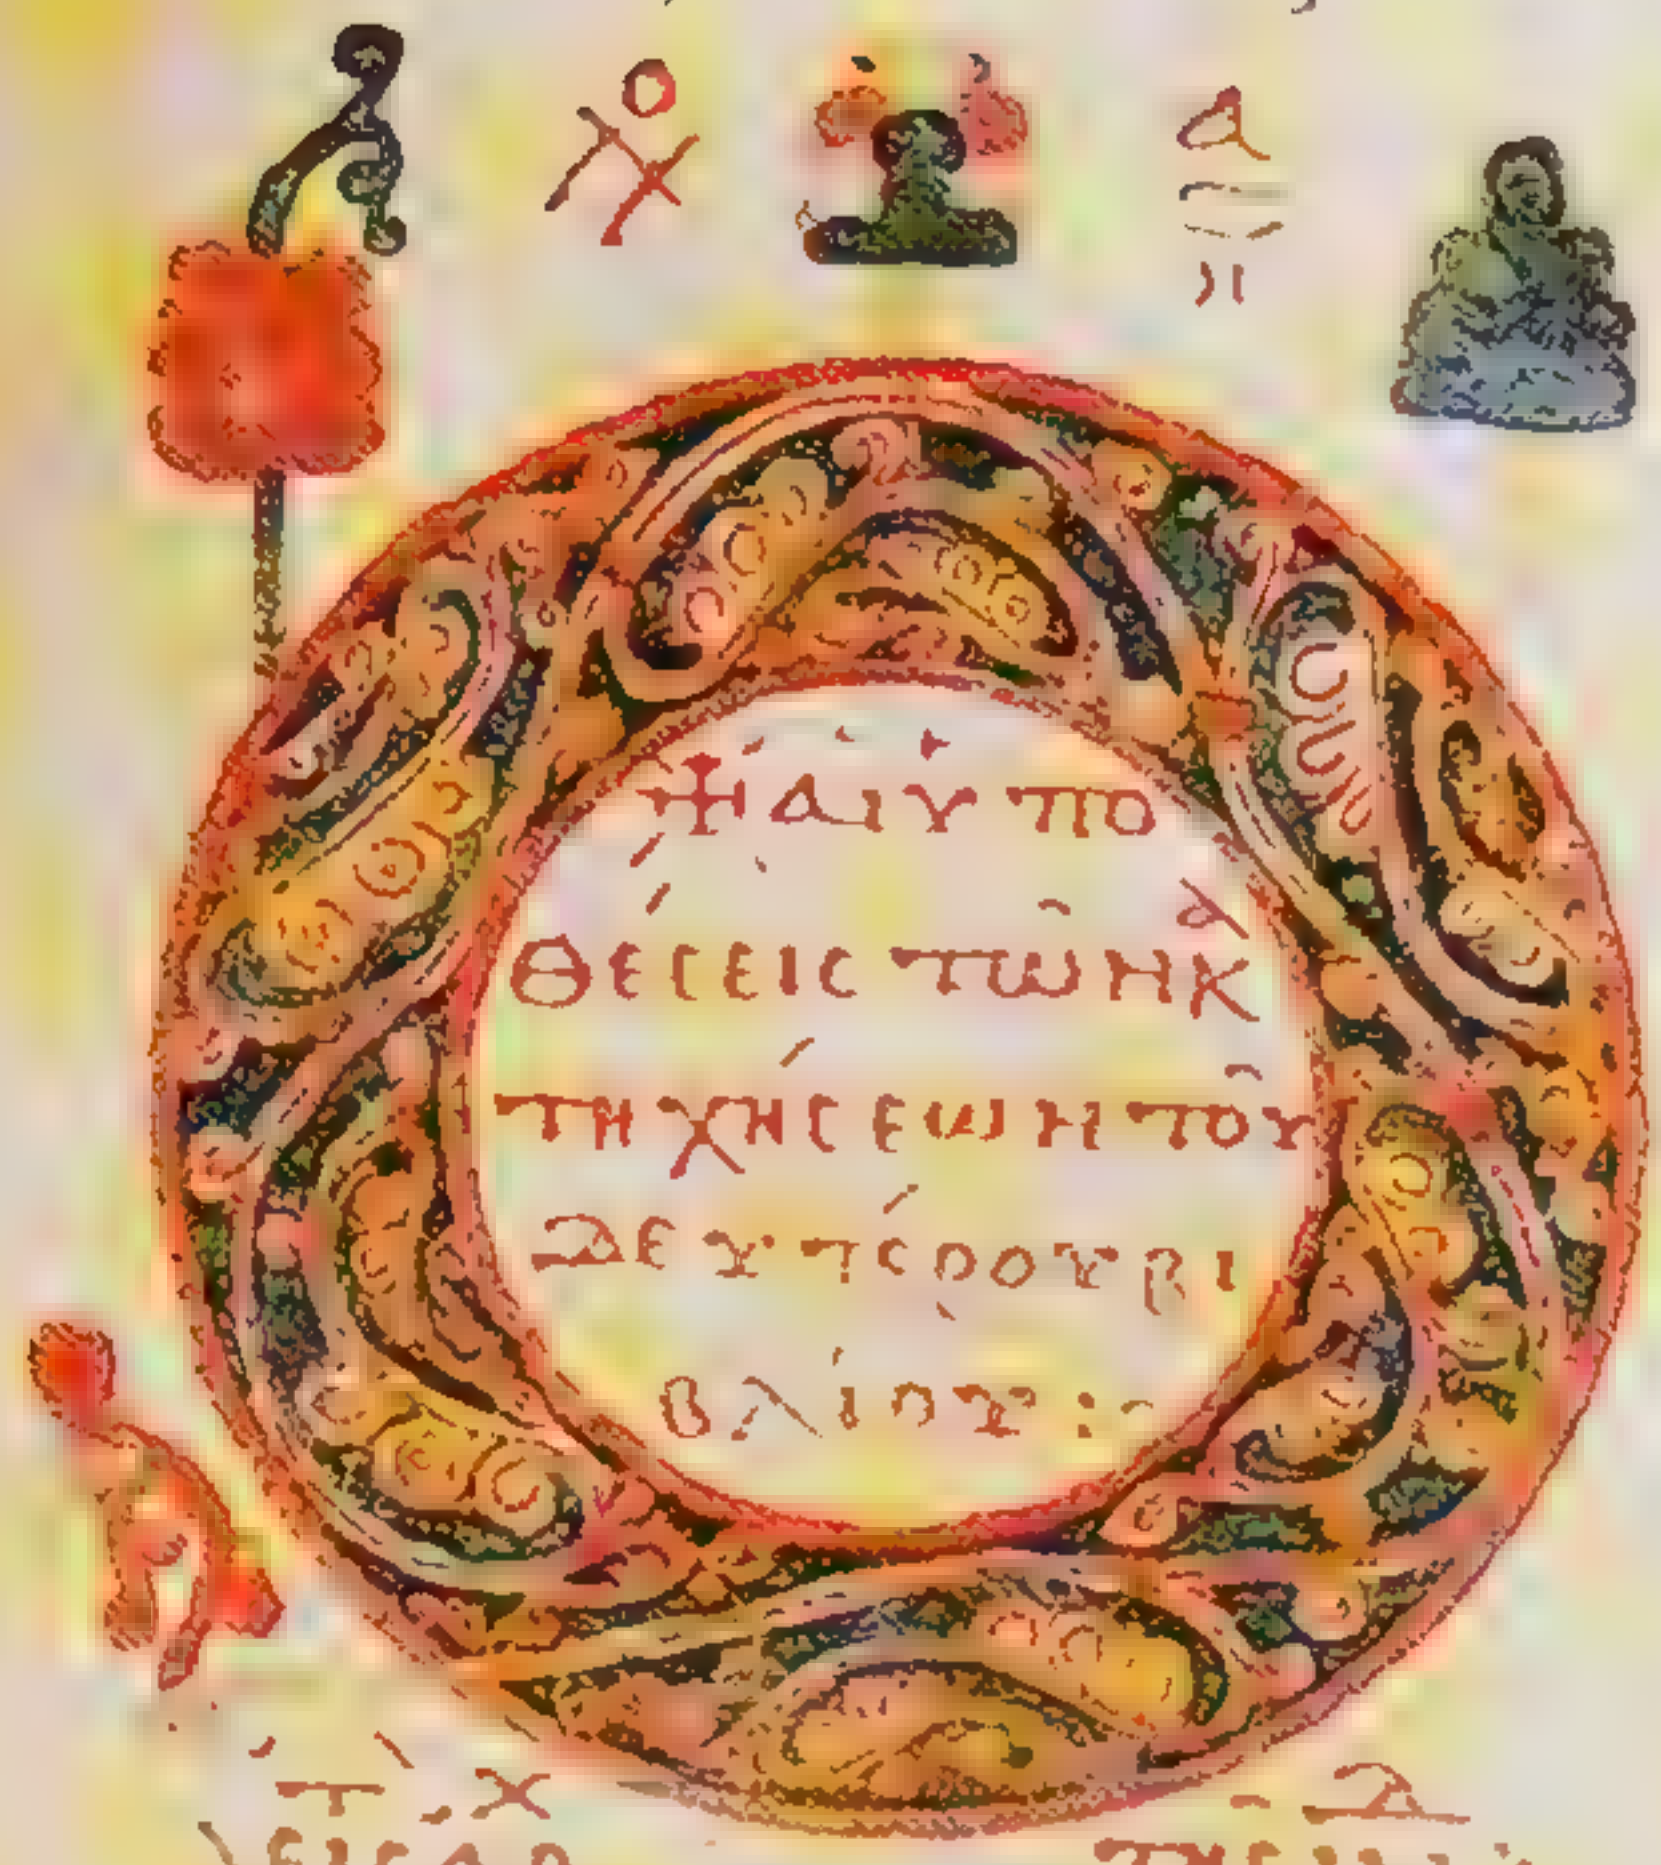 ✠ ΑΙ ΥΠΟ
ΘΕϹΕΙϹ ΤΩΝ Κ
ΤΗΧΗϹΕΩΝ ΤΟΥ
ΔΕΥΤΕΡΟΥ ΒΙ
ΒΛΙΟΥ :~